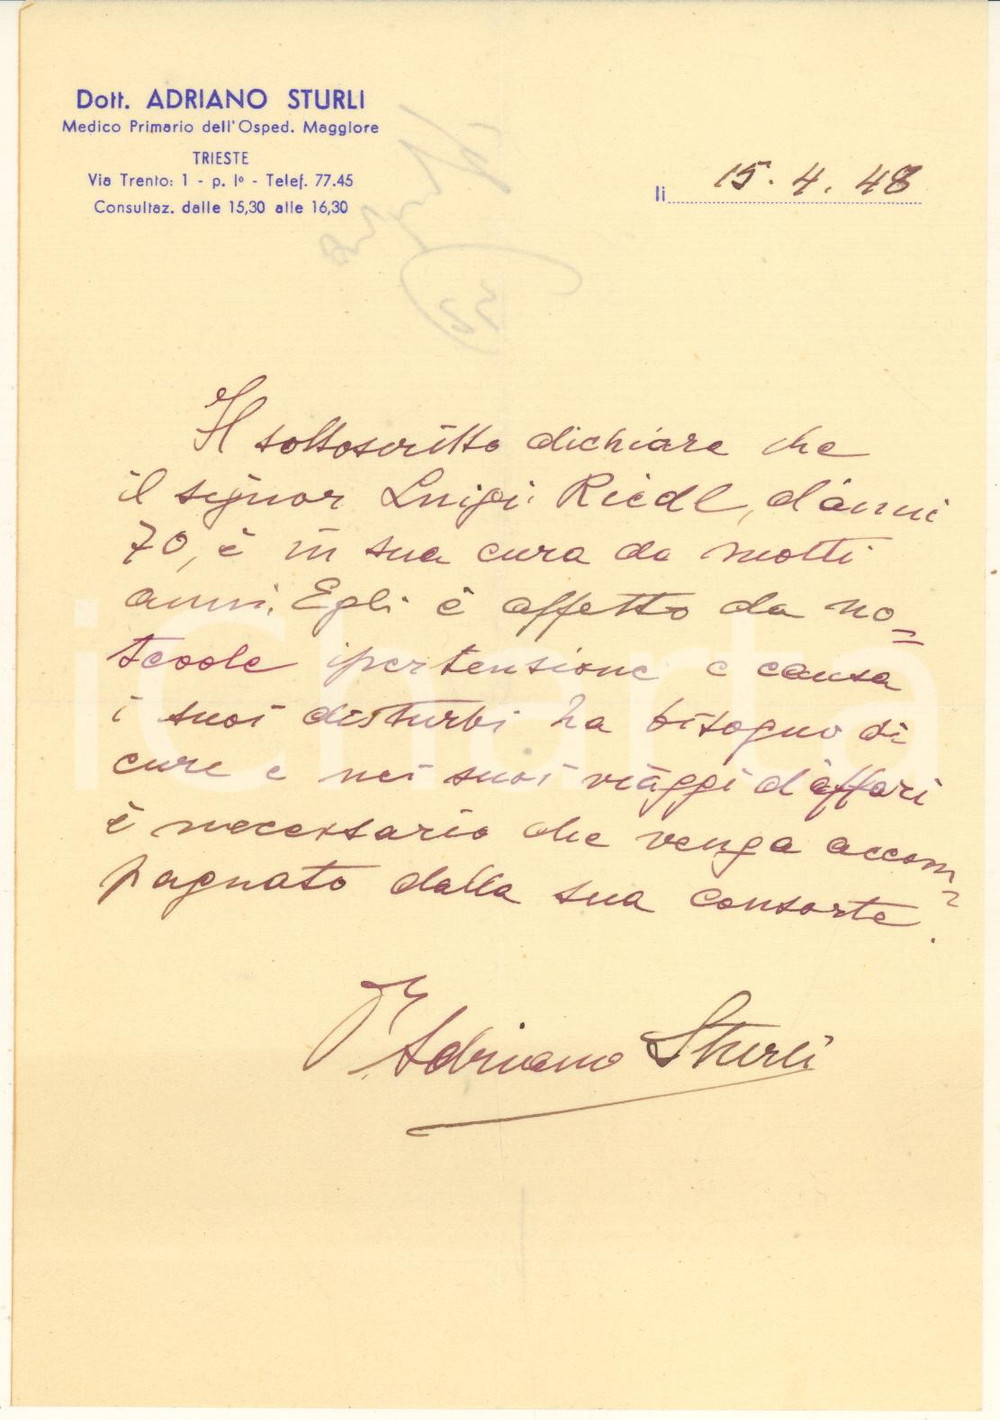 Dott. ADRIANO STURLI
Medico Primario dell'Osped. Maggiore
TRIESTE
Via Trento: 1 - p. Iº - Telef. 77.45
Consultaz. dalle 15,30 alle 16,30
li 15. 4. 48
Il sottoscritto dichiara che
il signor Luigi Riedl, d'anni
70, è in sua cura da molti
anni. Egli è affetto da no=
tevole ipertensione e causa
i suoi disturbi ha bisogno di
cure e nei suoi viaggi d'affari
è necessario che venga accom=
pagnato dalla sua consorte.
Adriano Sturli
iCharta